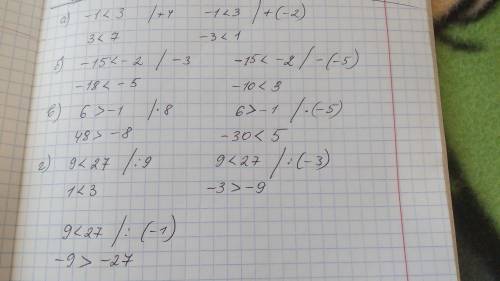 а) -1 < 3 / +4 -1 < 3 / + (-2)
3 < 7 -3 < 1
б) -15 < -2 / -3 -15 < -2 / - (-5)
-18 < -5 -10 < 3
в) 6 > -1 / · 8 6 > -1 / · (-5)
48 > -8 -30 < 5
г) 9 < 27 / : 9 9 < 27 / : (-3)
1 < 3 -3 > -9
9 < 27 / : (-1)
-9 > -27